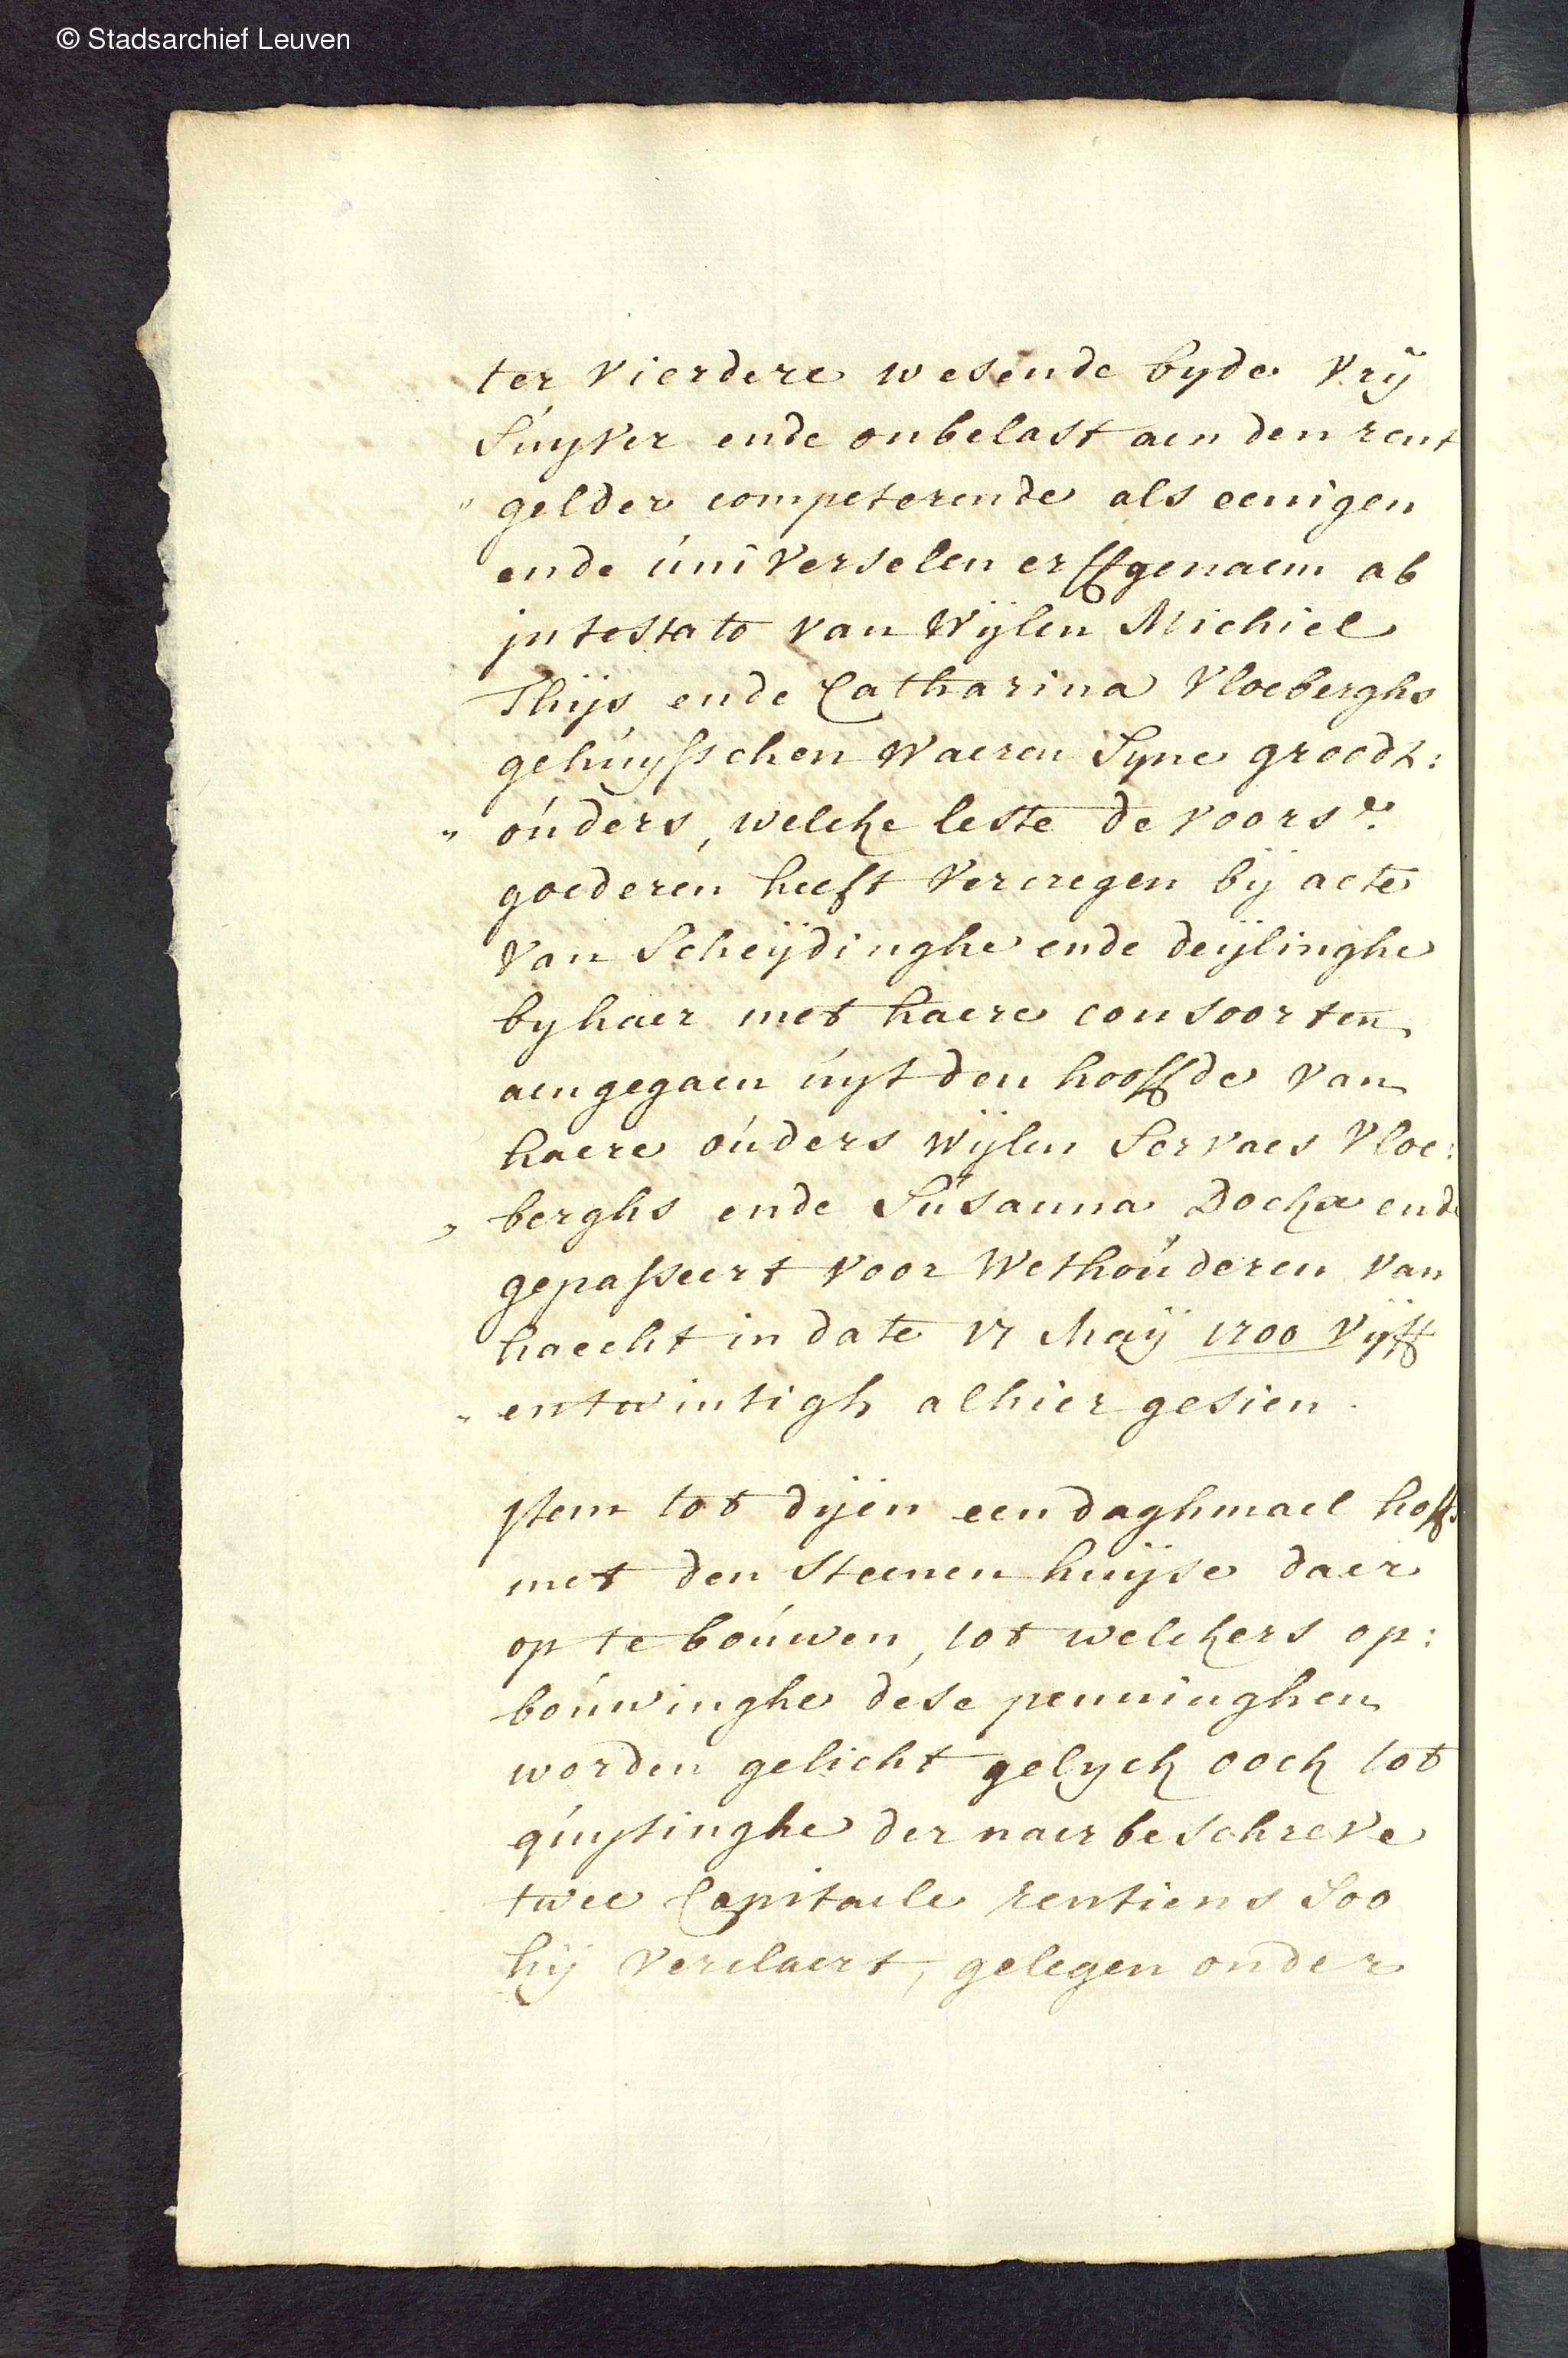 © Stadsarchief Leuven
ter vierdere wesende byde vrij
suyver ende onbelast aen den rent
" gelder competerende als eenigen
ende universelen erffgenaem ab
intestato van Wijlen Michiel
Thijs ende Catharina Vloeberghs
gehuysschen waeren syne groodt:
" ouders, welcke leste de voors.e
goederen heeft vercregen bij acte
van scheijdinghe ende deijlinghe
by haer met haere consoorten
aengegaen uyt den hooffde van
haere ouders wijlen Servaes Vloe:
" berghs ende Susanna Dockx ende
gepasseert voor Wethouderen van
haecht in date 17 Maij 1700 vijff
" entwintigh alhier gesien.
Item tot dijen een daghmael hoffs
met den steenen huijse daer
op te bouwen, tot welckers op:
bouwinghe dese penninghen
worden gelicht gelyck oock tot
quytinghe der naerbeschreve
twee Capitaele rentiens soo
hij verclaert, gelegen onder